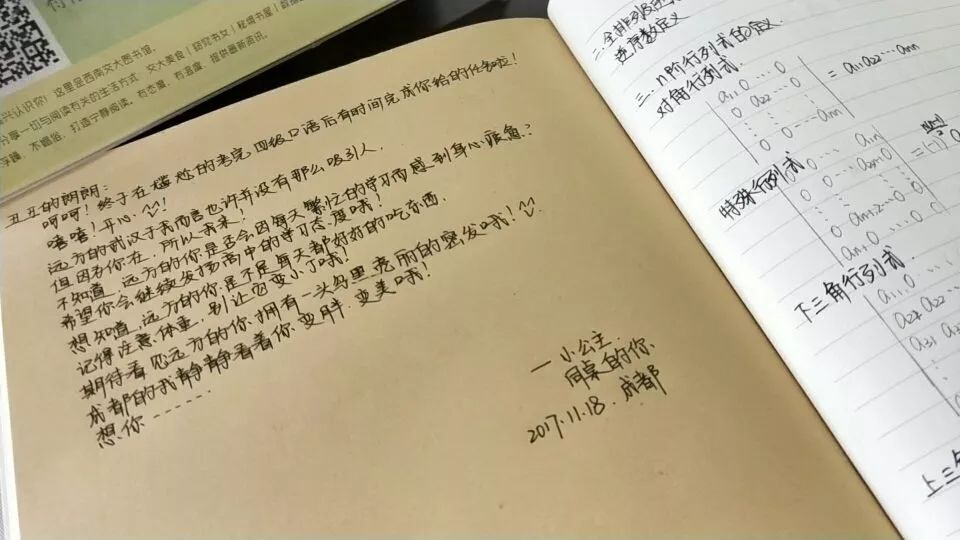 兴认识你！这里是西南交大图书馆，
分享一切与阅读有关的生活方式 交大美食｜窈究书女｜秘境书屋｜
不媚俗，打造宁静阅读，有态度，有温度，提供最新资讯。
丑丑的朗朗：
呵呵！终于在尴尬的考完四级口语后有时间完成你给的任务啦！
嘻嘻！开心
远方的武汉于我而言也许并没有那么吸引人，
但因为你在，所以我来！
不知道，远方的你是否会因每天繁忙的学习而感到身心疲惫？
希望你会继续发扬高中的学习态度哦！
想知道，远方的你是不是每天都好好的吃东西，
记得注意体重，别让它变小了哦！
期待看见远方的你拥有一头乌黑亮丽的秀发哦！
成都的我静静看着你变胖，变美哦！
想你……
一小公主
同桌的你
2017.11.18 成都
二.全排列及
逆序数定义
三.n阶行列式的定义
对角行列式
a11 0 … 0
0 a22 … 0
0 … ann
= a11a22 … ann
特殊行列式
0 … a1n
下三角行列式
a11 0
a21 a22
a31
上三